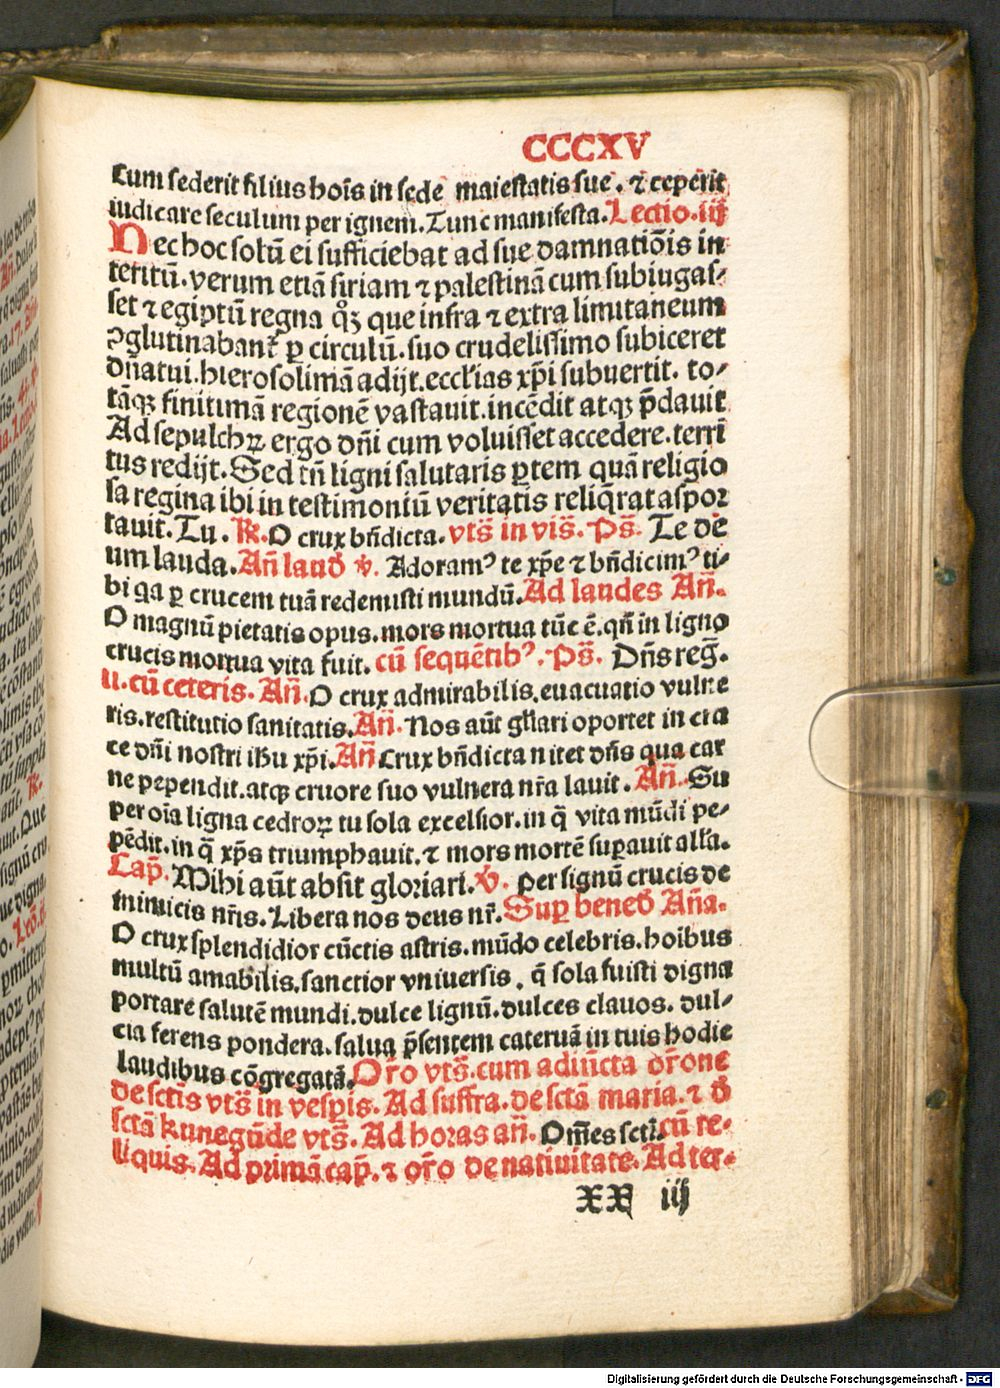 CCCXV
Cum sederit filius hoīs in sede maiestatis sue. ⁊ ceperit
iudicare seculum per ignem. Tunc manifesta. Lectio. iij
Nec hoc solū ei sufficiebat ad sue damnatiōis in
teritū. verum etiā siriam ⁊ palestinā cum subiugas⸗
set ⁊ egiptū regna qꝫ que infra ⁊ extra limitaneum
ꝯglutinabant᷑ ꝑ circulū. suo crudelissimo subiceret
dn̄atui. hierosolimā adijt. eccl'ias xp̄i subuertit. to⸗
tāqꝫ finitimā regionē vastauit. incēdit atqꝫ p̄dauit
Ad sepulchꝝ ergo dn̄i cum voluisset accedere. terri
tus redijt. Sed tn̄ ligni salutaris ꝑtem quā religio
sa regina ibi in testimoniū veritatis reliq̄rat aspor
tauit. Tu. ℟. O crux bn̄dicta. vts̄ in vis̄. Ps̄. Te de
um lauda. An̄ laud ℣. Adoramꝰ te xp̄e ⁊ bn̄dicimꝰ ti⸗
bi qa ꝑ crucem tuā redemisti mundū. Ad laudes An̄.
O magnū pietatis opus. mors mortua tūc ē. qn̄ in ligno
crucis mortua vita fuit. cū sequētibꝰ. Ps̄. Dn̄s reḡ.
u. cū ceteris. An̄. O crux admirabilis. euacuatio vulne
ris. restitutio sanitatis. An̄. Nos aūt gl'ari oportet in cru
ce dn̄i nostri ihu xp̄i. An̄ Crux bn̄dicta nitet dn̄s qua car
ne pependit. atqꝫ cruore suo vulnera nr̄a lauit. An̄. Su
per oīa ligna cedroꝝ tu sola excelsior. in q̄ vita mūdi pe⸗
pēdit. in q̄ xp̄s triumphauit. ⁊ mors mortē suꝑauit all'a.
Cap̄. Mihi aūt absit gloriari. ℣. per signū crucis de
inimicis nr̄is. Libera nos deus nr̄. Suꝑ bened An̄a.
O crux splendidior cūctis astris. mūdo celebris. hoibus
multū amabilis. sanctior vniuersis. q̄ sola fuisti digna
portare salutē mundi. dulce lignū. dulces clauos. dul⸗
cia ferens pondera. salua p̄sentem cateruā in tuis hodie
laudibus cōgregatā. Or̄o vts̄. cum adiūcta or̄one
de sctīs vts̄ in vesp̄is. Ad suffra. de sctā maria. ⁊ d
sctā kunegūde vts̄. Ad horas an̄. Om̄es scti. cū re⸗
liquis. Ad primā cap̄. ⁊ or̄o de natiuitate. Ad ter⸗
XX iij
Digitalisierung gefördert durch die Deutsche Forschungsgemeinschaft - DFG